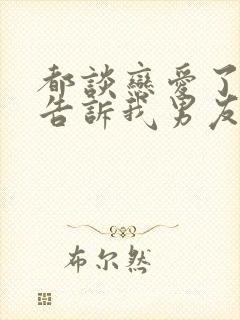 都談戀愛了
告訴我男友
布尔然